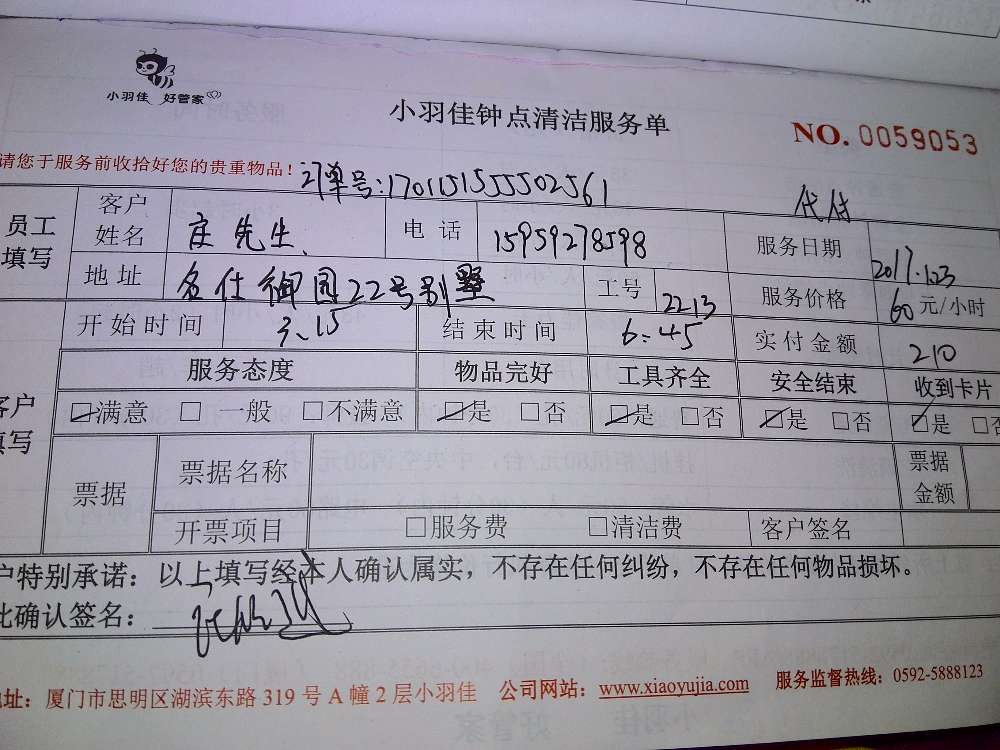 小羽佳 好管家
小羽佳钟点清洁服务单
NO. 0059053
请您于服务前收拾好您的贵重物品！
订单号:170115155502561
代付
员工填写
客户姓名 庄先生 电话 15959278598 服务日期 2017.1.23
地址 名仕御园22号别墅 工号 2213 服务价格 60元/小时
开始时间 3.15 结束时间 6:45 实付金额 210
客户填写
服务态度 物品完好 工具齐全 安全结束 收到卡片
☑满意 □一般 □不满意 ☑是 □否 ☑是 □否 ☑是 □否 ☑是 □否
票据 票据名称 票据金额
开票项目 □服务费 □清洁费 客户签名
户特别承诺：以上填写经本人确认属实，不存在任何纠纷，不存在任何物品损坏。
此确认签名：
地址：厦门市思明区湖滨东路319号A幢2层小羽佳 公司网站：www.xiaoyujia.com 服务监督热线：0592-5888123